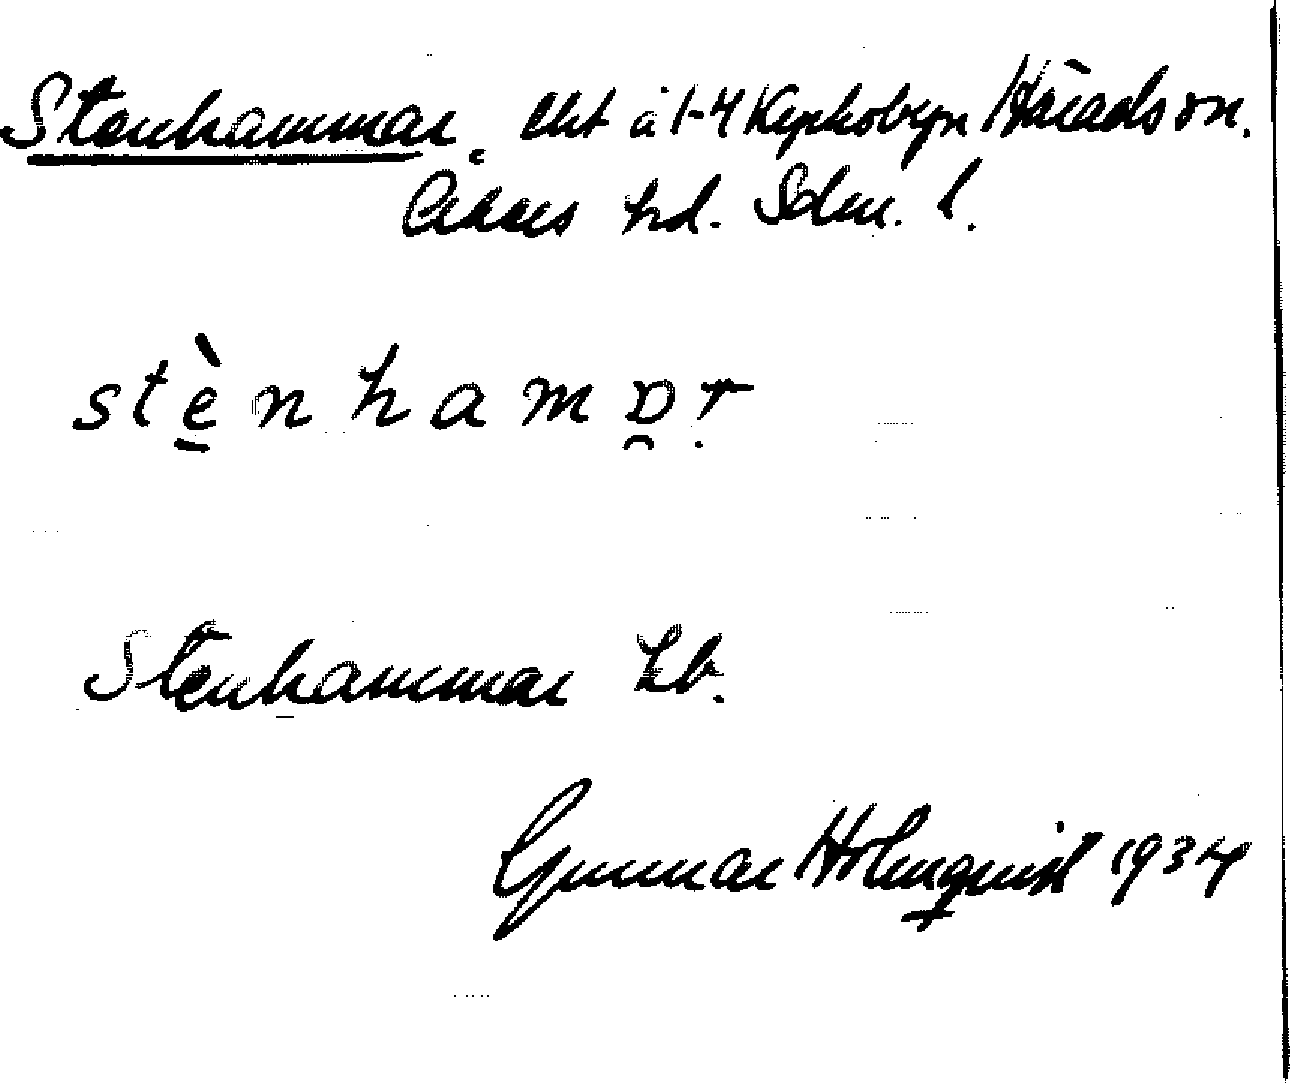 Stenhammar. lht å 1-4 Kyrkobyn Härads sn.
Åkers hd. Sdm. l.
stènhamər
Stenhammar Lb.
Gunnar Holmquist 1934